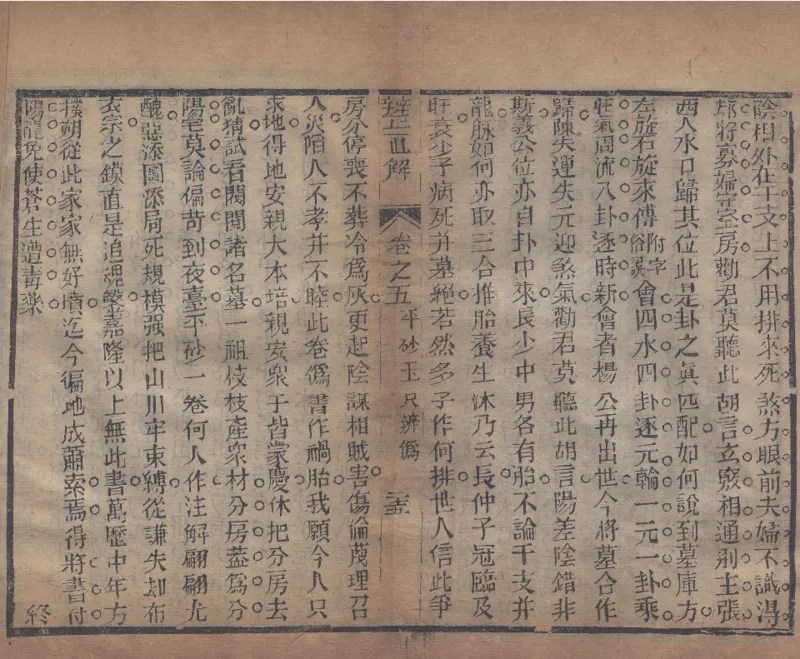 陰相外在干支上不用排來死煞方眼前夫婦不識得
却將寡婦守空房勸君莫聽此胡言玄竅相通別主張
酉人水口歸其位此是卦之真匹配如何說到墓庫方
左旋右旋來傅附字俗誤會四水四卦逐元輪一元一卦乘
旺氣周流八卦逐時新會者楊公再出世今將墓合作
歸陳失運失元迎煞氣勸君莫聽此胡言陽差陰錯非
斯義公位亦自卦中來長少中男各有胎不論干支并
龍脉如何亦取三合推胎養生沐乃云長仲子冠臨及
旺衰少子病死并墓絕若然多子作何排世人信此爭
辨正直解 卷之五 平砂玉尺辨偽 三五
房分停喪不葬冷為灰更起陰謀相賊害傷倫蔑理召
人災陷人不孝并不睦此卷偽書作禍胎我願今人只
求地得地安親大本培親安衆子皆蒙慶休把分房去
亂猜試看閥閱諸名墓一祖枝枝產衆材分房蓋為分
陽宅莫論偏苛到夜臺平砂一卷何人作注解翩翩尤
醜惡添圖添局死規模强把山川牢束縛從謙失却布
衣宗之鏌直是追魂鑿嘉隆以上無此書萬歷中年方
撲朔從此家家無好墳迄今徧地成蕭索焉得將書付
陽龍免使蒼生遭毒藥
終